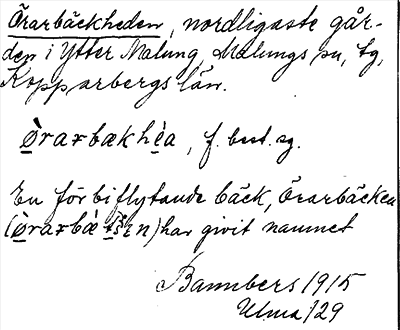 Örarbäckheden, nordligaste går-
den i Ytter Malung, Malungs sn, tg,
Kopparbergs län.
òraxbækhèa, f. best. sg.
En förbiflytande bäck, Örarbäcken
(òraxbæ̀tsɛn) har givit namnet
Bannbers 1915
Ulma 129